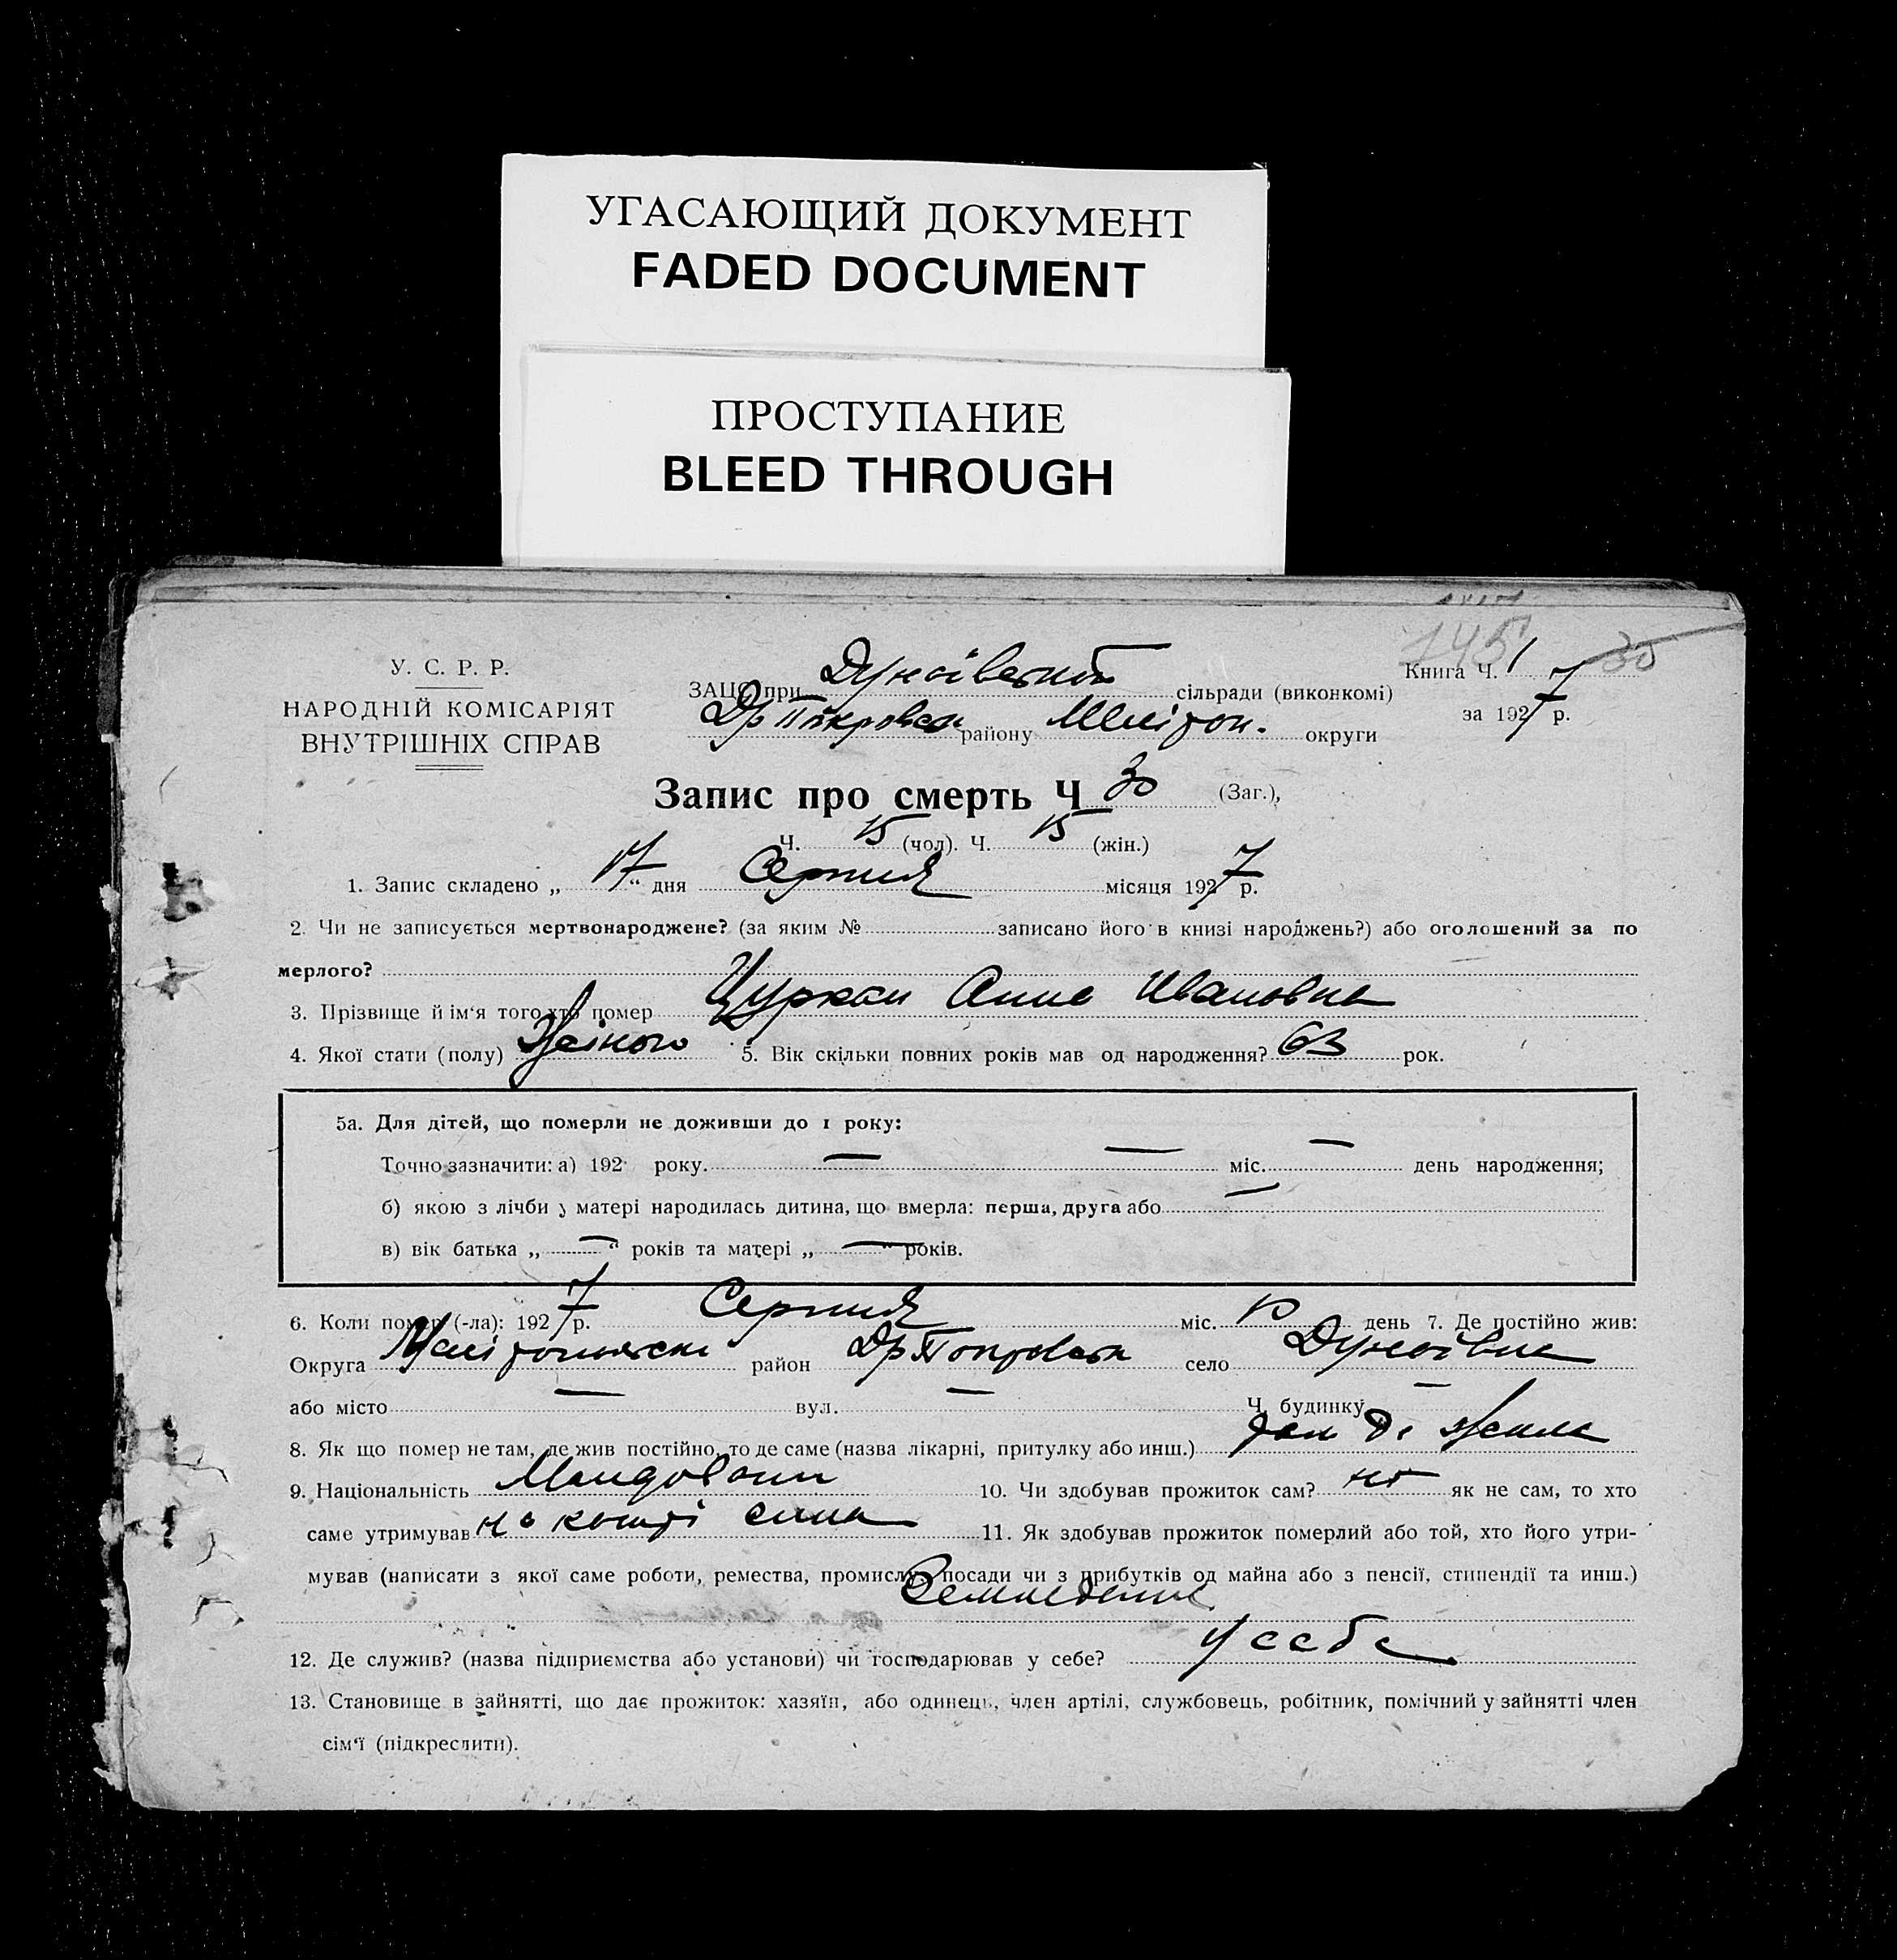 УГАСАЮЩИЙ ДОКУМЕНТ
FADED DOCUMENT
ПРОСТУПАНИЕ
BLEED THROUGH
145 30
У. С. Р. Р.
НАРОДНІЙ КОМІСАРІЯТ
ВНУТРІШНІХ СПРАВ
Книга Ч. 1
ЗАЦС при Дунаївській сільради (виконкомі)
за 1927 р.
Др Покровськ району Мелітоп. округи
Запис про смерть Ч 30 (Заг.),
Ч. 15 (чол). Ч. 15 (жін.)
1. Запис складено „ 17 “ дня Серпня місяця 1927 р.
2. Чи не записується мертвонароджене? (за яким № записано його в книзі народжень?) або оголошений за по
мерлого?
3. Прізвище й ім‘я того хто помер Цуркан Анна Ивановна
4. Якої стати (полу) Жіного 5. Вік скільки повних років мав од народження? 63 рок.
5а. Для дітей, що померли не доживши до 1 року:
Точно зазначити: а) 192 року. — — міс. — день народження;
б) якою з лічби у матері народилась дитина, що вмерла: перша, друга або —
в) вік батька „ — “ років та матері „ — “ років.
6. Коли помер (-ла): 1927 р. Серпня міс. день 7. Де постійно жив:
Округа район Др Покровськ село Дунаївка
або місто — вул. — Ч. будинку —
8. Як що помер не там, де жив постійно, то де саме (назва лікарні, притулку або инш.) там де жила
9. Національність Молдован 10. Чи здобував прожиток сам? ні як не сам, то хто
саме утримував на кошті сина 11. Як здобував прожиток померлий або той, хто його утри-
мував (написати з якої саме роботи, ремества, промислу, посади чи з прибутків од майна або з пенсії, стипендії та инш.)
Земледелие
12. Де служив? (назва підприємства або установи) чи господарював у себе? у себе
13. Становище в зайнятті, що дає прожиток: хазяїн, або одинець, член артілі, службовець, робітник, помічний у зайнятті член
сім‘ї (підкреслити).